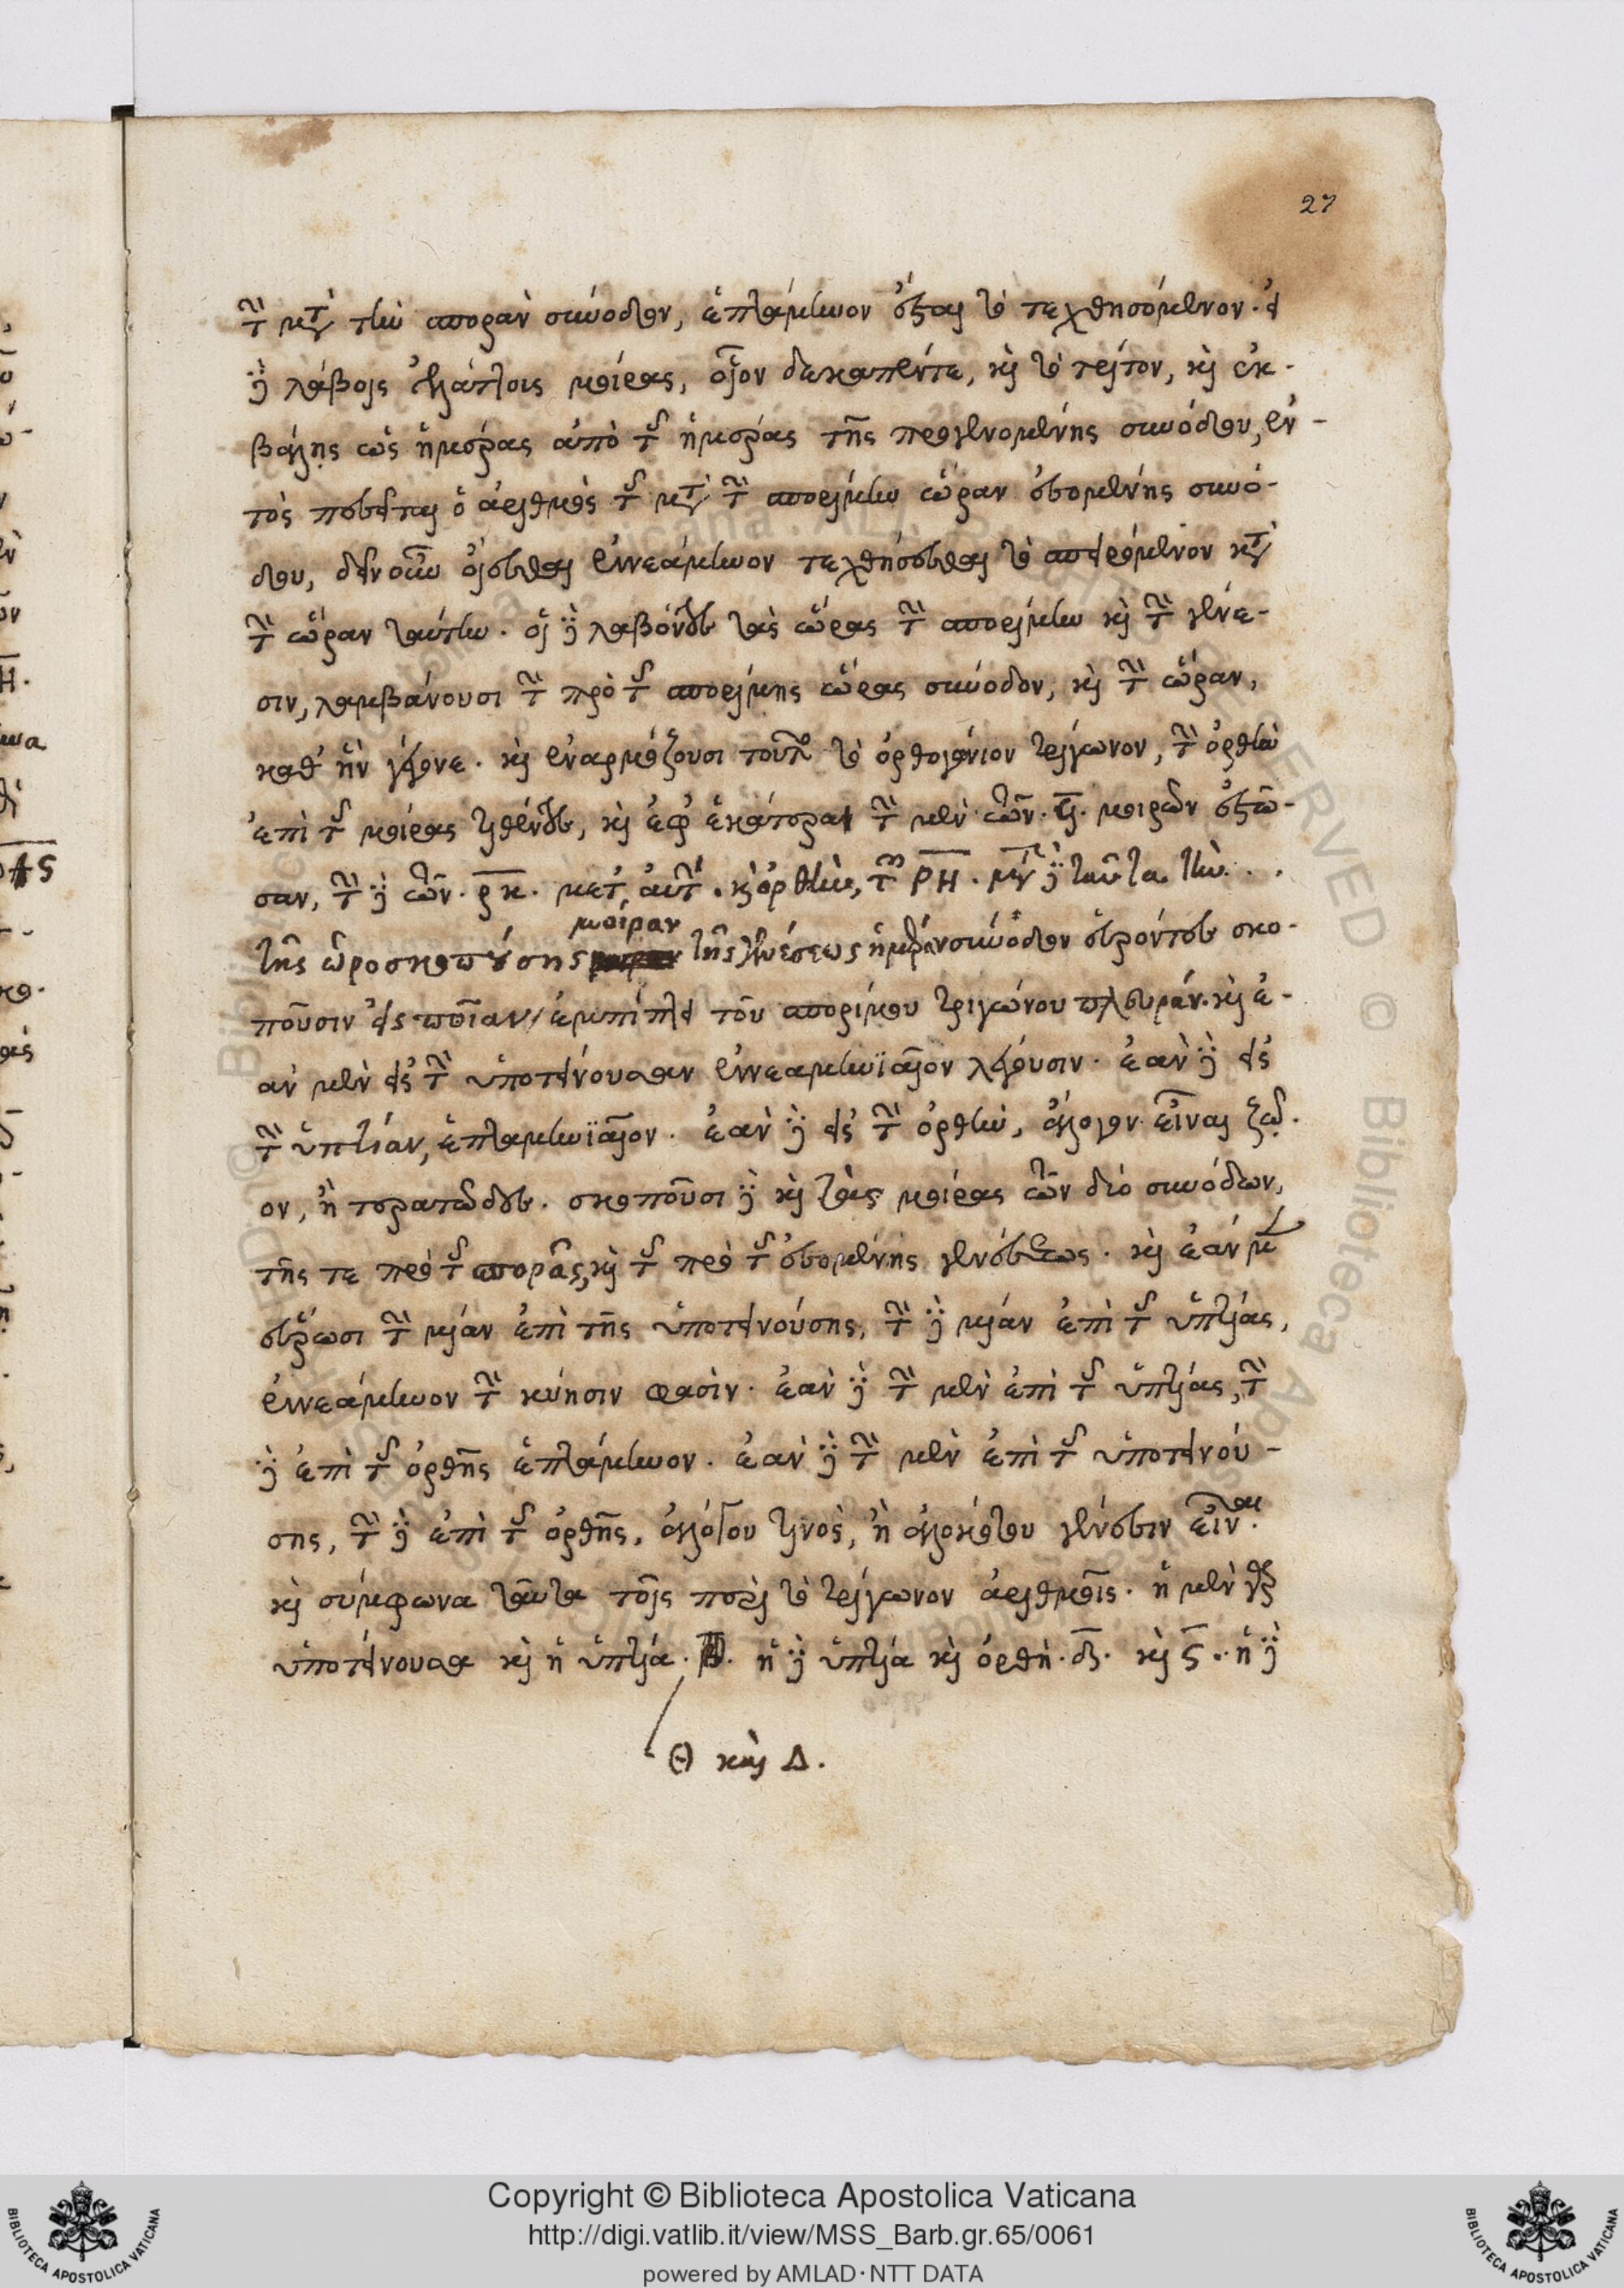 27
τὴν μετὰ τὴν σπορὰν σύνοδον, ἑπτάμηνον ἔσται τὸ τεχθησόμενον. εἰ
δὲ λάβοις ἐλάττοις μοίρας, οἷον δεκαπέντε, καὶ τὸ τρίτον, καὶ ἐκ-
βάλης ὡς ἡμέρας ἀπὸ τῆς ἡμέρας τῆς προγενομένης συνόδου, ἐν-
τὸς πεσεῖται ὁ ἀριθμὸς τῆς μετὰ τὴν σπορίμην ὥραν ἐσομένης συνό-
δου, δεῖν οὖν οἴεσθαι ἐννεάμηνον τεχθήσεσθαι τὸ σπειρόμενον κατὰ
τὴν ὥραν ταύτην. οἱ δὲ λαβόντες τὰς ὥρας τὴν σπορίμην καὶ τὴν γένε-
σιν, λαμβάνουσι τὴν πρὸ τῆς σπορίμης ὥρας σύνοδον, καὶ τὴν ὥραν,
καθ' ἣν γέγονε. καὶ ἐναρμόζουσι τοῦτο τὸ ὀρθογώνιον τρίγωνον, τὴν ὀρθὴν
ἐπὶ τῆς μοίρας τιθέντες, καὶ ἐφ' ἑκάτερα τὴν μὲν τῶν. ϟ. μοιρῶν ἐξῶ-
σαν, τὴν δὲ τῶν. ρκ. μετ' αὐτήν. καὶ ὀρθὴν, τὴν ΡΗ. μετὰ δὲ ταῦτα τὴν. . .
τῆς ὡροσκοπούσης μοίραν τῆς γενέσεως ἡμέραν σύνοδον εὑρόντες σκο-
ποῦσιν εἰς ποίαν ἐμπίπτει τοῦ σπορίμου τριγώνου πλευράν. καὶ ἐ-
ὰν μὲν εἰς τὴν ὑποτείνουσαν ἐννεαμηνιαῖον λέγουσιν. ἐὰν δὲ εἰς
τὴν ὑπτίαν, ἑπταμηνιαῖον. ἐὰν δὲ εἰς τὴν ὀρθὴν, ἄλογον εἶναι ζῶ-
ον, ἢ τερατῶδες. σκοποῦσι δὲ καὶ τὰς μοίρας τῶν δύο συνόδων,
τῆς τε πρὸ τῆς σπορᾶς, καὶ τῆς πρὸ τῆς ἐσομένης γενέσεως. καὶ ἐὰν μὲν
εὕρωσι τὴν μίαν ἐπὶ τῆς ὑποτεινούσης, τὴν δὲ μίαν ἐπὶ τῆς ὑπτίας,
ἐννεάμηνον τὴν κύησιν φασίν. ἐὰν δὲ τὴν μὲν ἐπὶ τῆς ὑπτίας, τὴν
δὲ ἐπὶ τῆς ὀρθῆς ἑπτάμηνον. ἐὰν δὲ τὴν μὲν ἐπὶ τῆς ὑποτεινού-
σης, τὴν δὲ ἐπὶ τῆς ὀρθῆς, ἀλόγου τινὸς, ἢ ἀλοκότου γένεσιν εἶναι.
καὶ σύμφωνα ταῦτα τοῖς περὶ τὸ τρίγωνον ἀριθμοῖς. ἡ μὲν γὰρ
ὑποτείνουσα καὶ ἡ ὑπτία. ἡ δὲ ὑπτία καὶ ὀρθὴ. δ. καὶ ϛ. ἡ δὲ
Θ καὶ Δ.
Copyright © Biblioteca Apostolica Vaticana
http://digi.vatlib.it/view/MSS_Barb.gr.65/0061
powered by AMLAD·NTT DATA